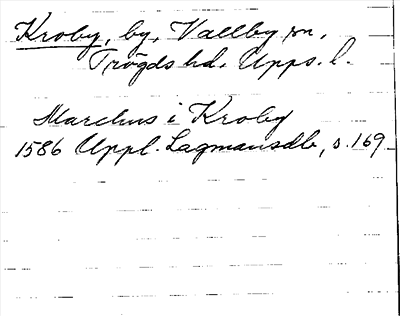 Kroby, by, Vallby sn,
Trögds hd, Upps. l.
Marchus i Kroby
1586 Uppl. Lagmansdb, s. 169